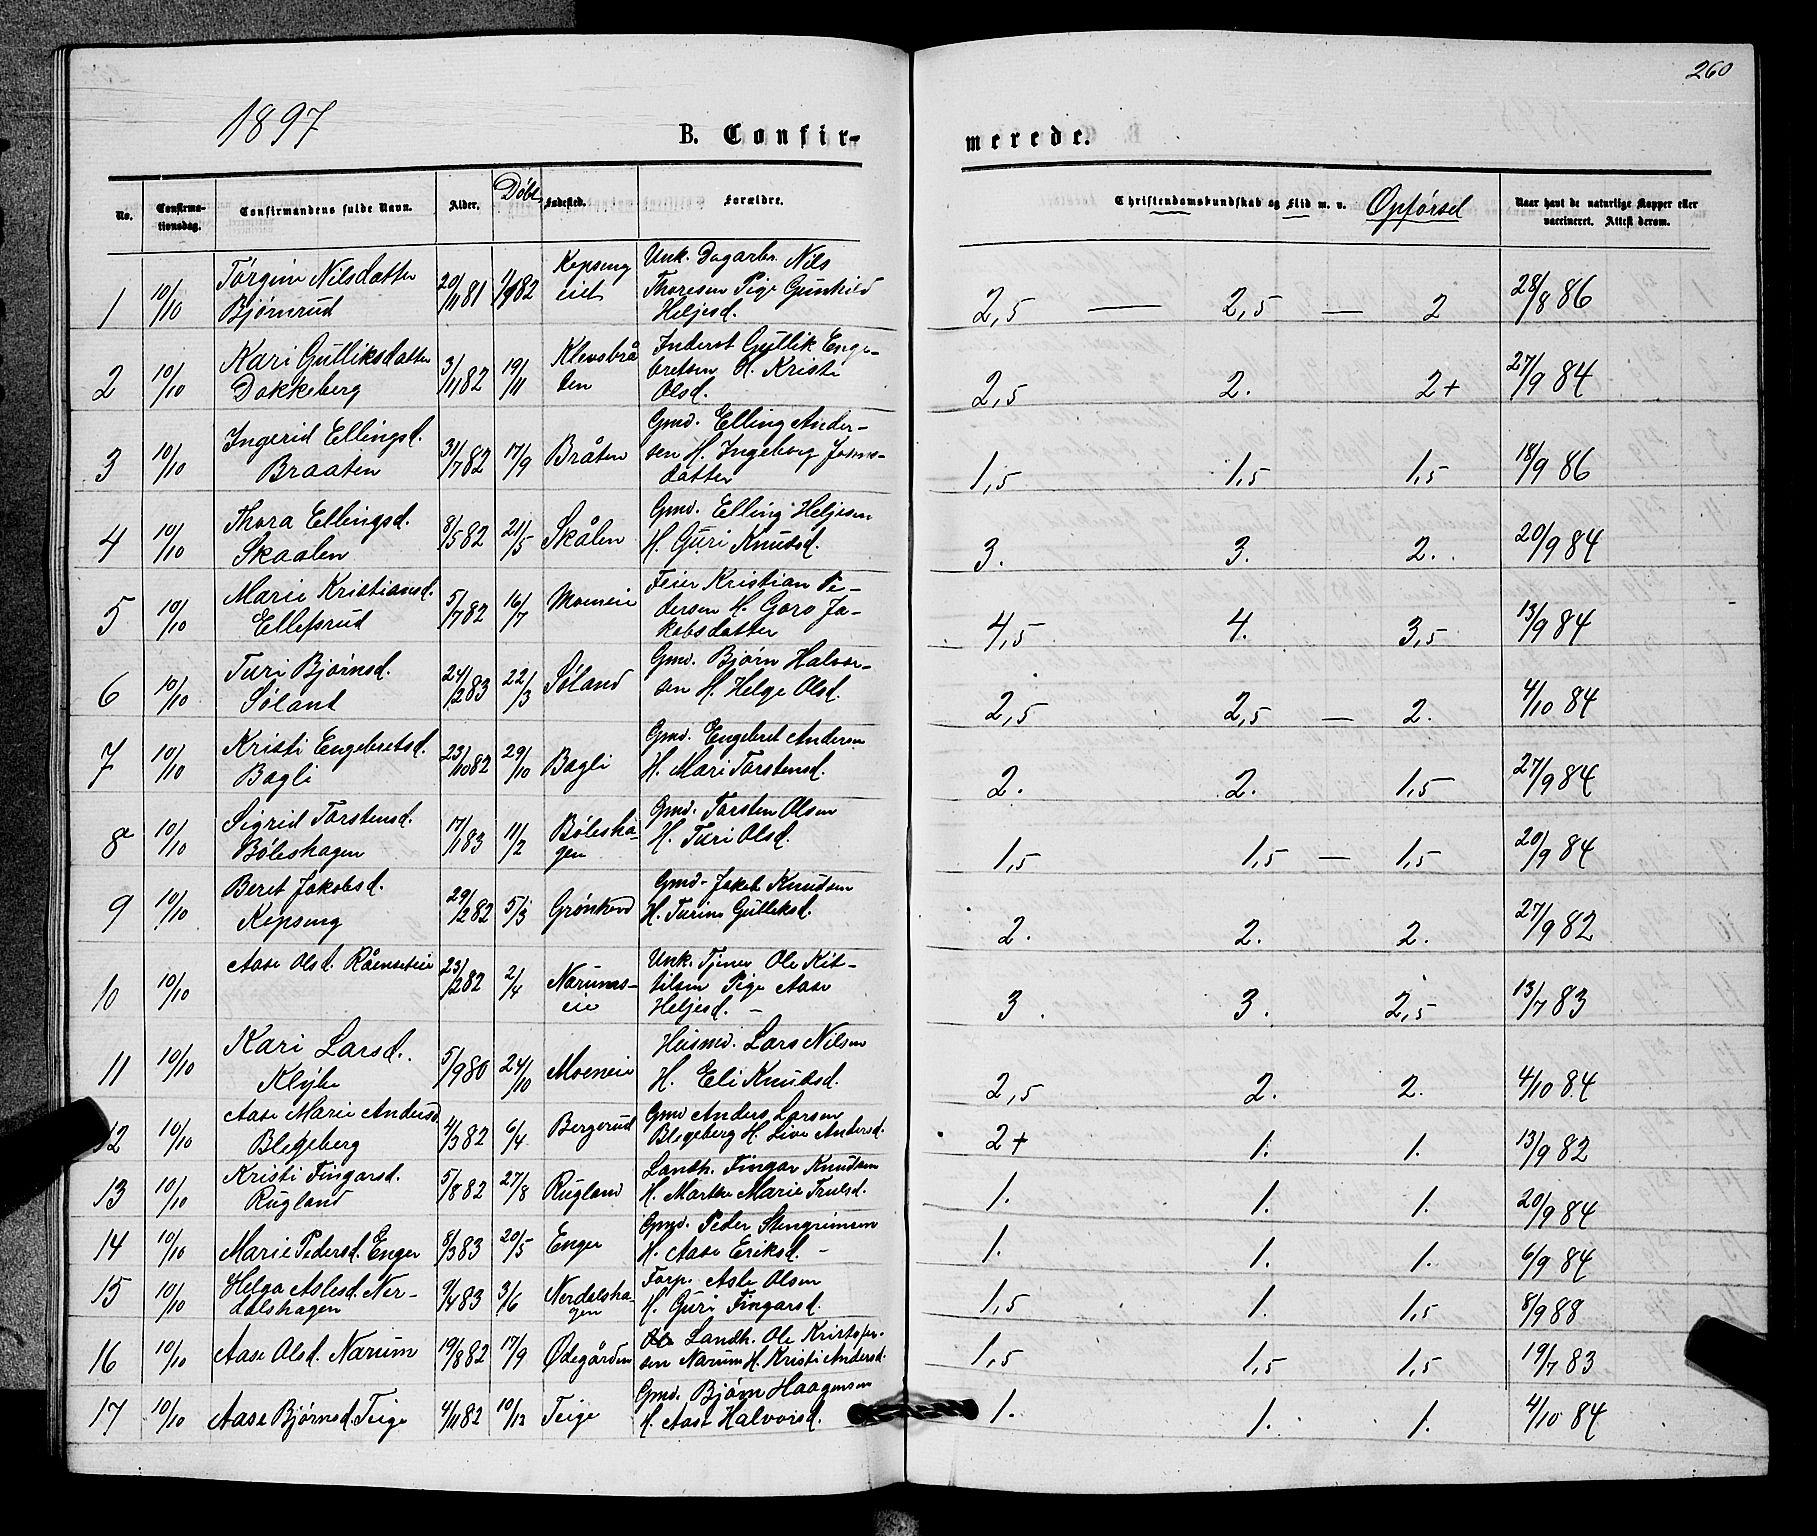 260
1897
B. Confir-
merede.
No.
Confirma-
tionsdag.
Confirmandens fulde Navn.
Alder.
Döbt
Indested.
Forældre.
Christendomskundskab og Flid m. v.
Opförsel
Naar havt de naturlige Kopper eller
vaccineret. Attest derom.
1 10/10 Törgine Nilsdatter 20/11 81 1/1 82 Kopseng Unk. Dagarbr. Nils
Bjørnrud eiet Thoresen Pige Gunhild
Heljesd.
2,5 — 2,5 — 2 28/8 86
2 10/10 Kari Gulliksdatter 3/11 82 19/11 Klevsbrå Inderst Gullik Enge-
Dokkeberg ten bretsen H. Kristi
Olsd.
2,5 2. 2+ 27/9 84
3 10/10 Ingerid Ellingsd. 31/7 82 17/9 Bråten Gmd. Elling Ander-
Braaten sen H. Ingeborg Joens-
datter
1,5 1,5 1,5 18/9 86
4 10/10 Thora Ellingsd. 8/5 82 21/5 Skålen Gmd. Elling Heljesen
Skaalen H. Guri Knudsd.
3. 3. 2. 20/9 84
5 10/10 Marie Kristiansd. 5/7 82 16/7 Moeneie Feier Kristian Pe-
Ellefsrud dersen H. Goro Ja-
kobsdatter
4,5 4. 3,5 13/9 84
6 10/10 Turi Bjørnsd. 24/2 83 22/3 Søland Gmd. Bjørn Halvor-
Søland sen H. Helge Olsd.
2,5 2,5 — 2. 4/10 84
7 10/10 Kristi Engebretsd. 23/10 82 29/10 Bagli Gmd. Engebret Andersen
Bagli H. Mari Torstensd.
2. 2. 1,5 27/9 84
8 10/10 Sigrid Torstensd. 17/1 83 11/2 Böleshå- Gmd. Torsten Olsen
Bøleshagen gen H. Turi Olsd.
1,5 1,5 — 1,5 20/9 84
9 10/10 Beret Jakobsd. 29/2 82 5/3 Grönhovd Gmd. Jakob Knudsen
Kopseng H. Turine Gulliksd.
2. 2. 2. 27/9 82
10 10/10 Aase Olsd. Råenseteie 23/2 82 2/4 Narums- Unk. Tjener Ole Kit-
eie tilsen Pige Aase
Heljesd. —
3. 3. 2,5 13/7 83
11 10/10 Kari Larsd. 5/9 80 24/10 Moeneie Husmd. Lars Nilsen
Klybe H. Eli Knudsd.
2,5 2. 2. 4/10 84
12 10/10 Aase Marie Andersd. 4/3 82 6/4 Bergerud Gmd Anders Larsen
Blegeberg Blegeberg H. Live Andersd.
2+ 1. 1. 13/9 82
13 10/10 Kristi Fingarsd. 5/8 82 27/8 Rugland Landh. Fingar Knudsen
Rugland H. Marthe Marie Trulsd.
1. 1. 1. 20/9 84
14 10/10 Marie Pedersd. Enger 8/3 83 20/5 Enger Gmd. Peder Stengrimsen
H. Aase Eriksd. —
1. 1. 1. 6/9 84
15 10/10 Helga Aslesd. Ner- 9/4 83 3/6 Nerdalsha- Forp. Asle Olsen
dalshagen gen H. Guri Fingarsd.
1,5 1. 1,5 8/9 88
16 10/10 Aase Olsd. Narum 19/8 82 17/9 Ødegården Ole Landh. Ole Kristofer-
sen Narum H. Kristi Andersd.
1,5 1,5 1,5 19/7 83
17 10/10 Aase Bjørnsd. Teige 4/11 82 10/12 Teige Gmd. Bjørn Haagensen
H. Aase Halvorsd.
1. 1. 1. 4/10 84